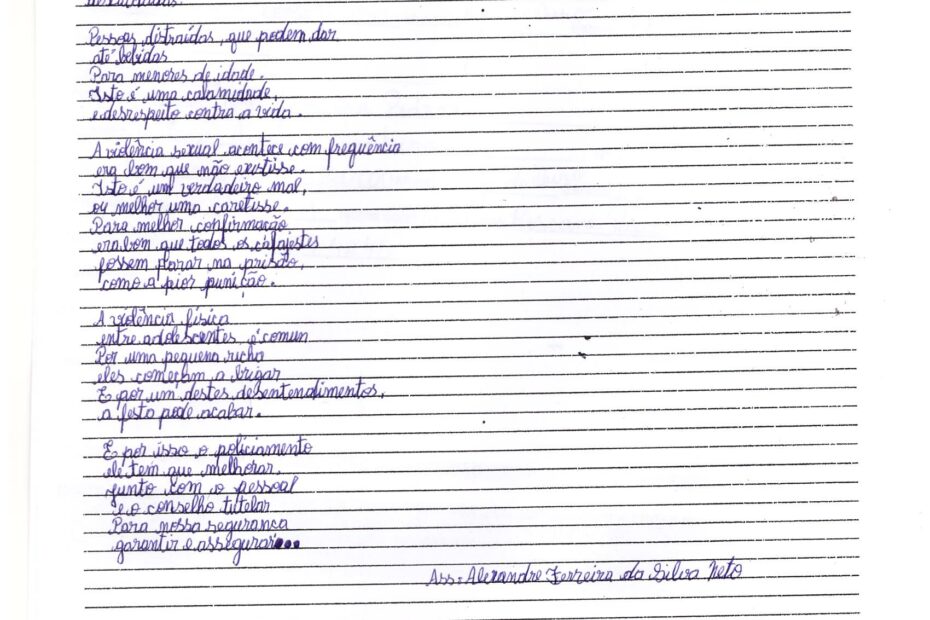 Pessoas distraídas, que podem dar
até bebidas
Para menores de idade.
Isto é uma calamidade,
e desrespeito contra a vida.
A violência sexual acontece com frequência
era bom que não existisse.
Isto é um verdadeiro mal,
ou melhor uma caretisse.
Para melhor confirmação
era bom que todos os cafajestes
fossem parar na prisão,
como a pior punição.
A violência física
entre adolescentes é comun
Por uma pequena richa
eles começam a brigar
E por um destes desentendimentos,
a festa pode acabar.
E por isso o policiamento
ele tem que melhorar,
junto com o pessoal
e o conselho tutelar
Para nossa segurança
garantir e assegurar...
Ass: Alexandre Ferreira da Silva Neto